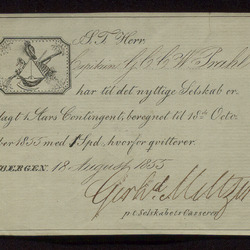 S. T. Herr
Capitain G. C. C. W.
har til det nyttige Selskab er
lagt 1 Aars Contingent, beregnet til 18de Octo
ber 1855 med 1 Spd, hvorfor qvitterer.
BERGEN, 18 August 1855
Gerhd. Meltzer
p.t. Selskabets Casserer